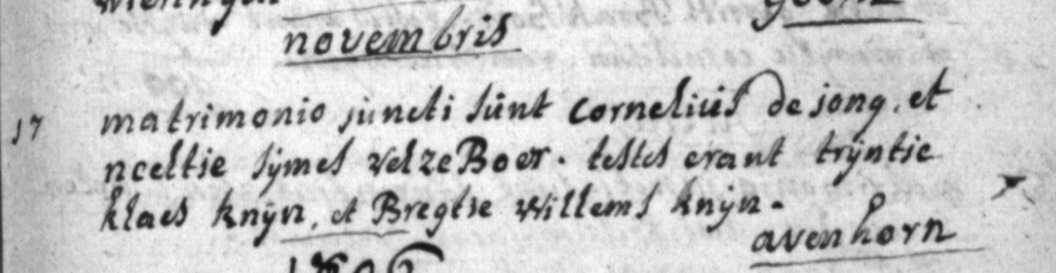 novembris
17 matrimonio juncti sunt Cornelius de jong. et
neeltie sijmes velzeBoer. testes erant trijntie
klaes knijn, et Bregtie willems knijn.
avenhorn